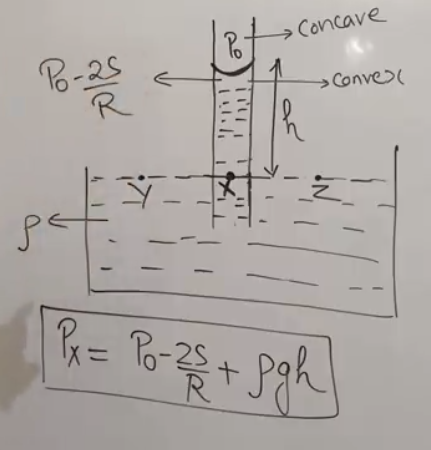 P₀ → concave
P₀ - 2S/R
→ convex
h
Y X Z
ρ
Pₓ = P₀ - 2S/R + ρgh